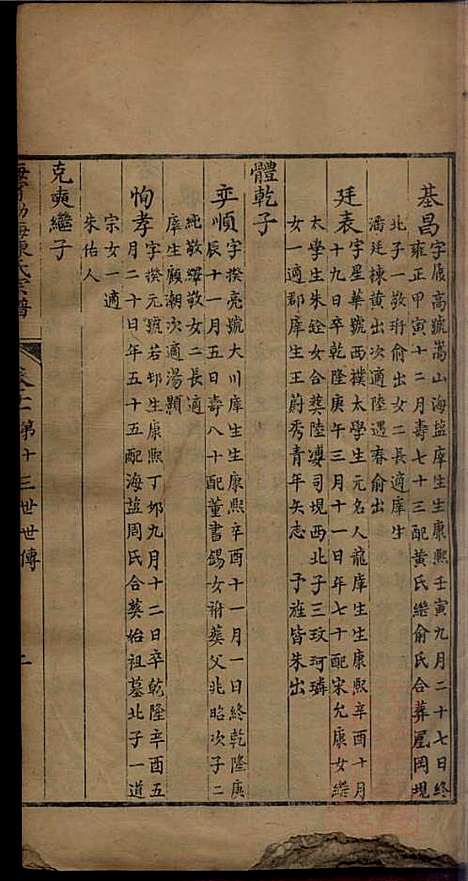 基昌
字展高號嵩山海盐庠生生康熙壬寅九月二十七日终
雍正甲寅十二月壽七十三配黄氏继俞氏合葬凰岡坝
北子一敬珩俞出女二長適庠生
潘廷棟黄出次適陸遇春俞出
廷表
字星華號西樸太學生元名人龍庠生生康熙辛酉十月
十九日卒乾隆庚午三月十一日年七十配宋允康女継
太學生朱銓女合葵陸凄司坝西北子三玫珂璘
女一適郡庠生王蔚秀青年矢志予旌皆朱出
體乾子
弈順
字揆亮號大川庠生生康熙辛酉十一月一日終乾隆庚
辰十一月五日壽八十配董書錫女祔葵父兆昭次子二
純敬㷸敬女二長適
庠生顧潮次適湯顥
恂孝
字揆元號若邨生康熙丁夘九月十二日卒乾隆辛酉五
月二十日年五十五配海盐周氏合葵始祖墓北子一道
宗女一適
朱佑人
克爽繼子
海寧渤海陳氏宗譜
卷十二 第十三世世傳
二